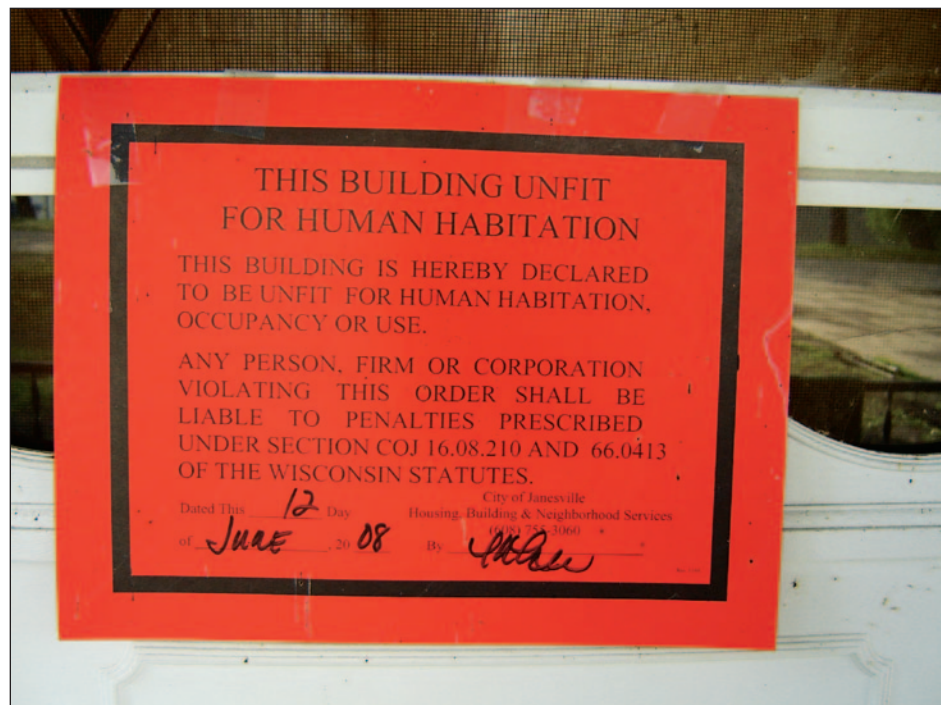 THIS BUILDING UNFIT
FOR HUMAN HABITATION
THIS BUILDING IS HEREBY DECLARED
TO BE UNFIT FOR HUMAN HABITATION,
OCCUPANCY OR USE.
ANY PERSON, FIRM OR CORPORATION
VIOLATING THIS ORDER SHALL BE
LIABLE TO PENALTIES PRESCRIBED
UNDER SECTION COJ 16.08.210 AND 66.0413
OF THE WISCONSIN STATUTES.
Dated This 12 Day
of June, 20 08
City of Janesville
Housing, Building & Neighborhood Services
(608) 755-3060
By